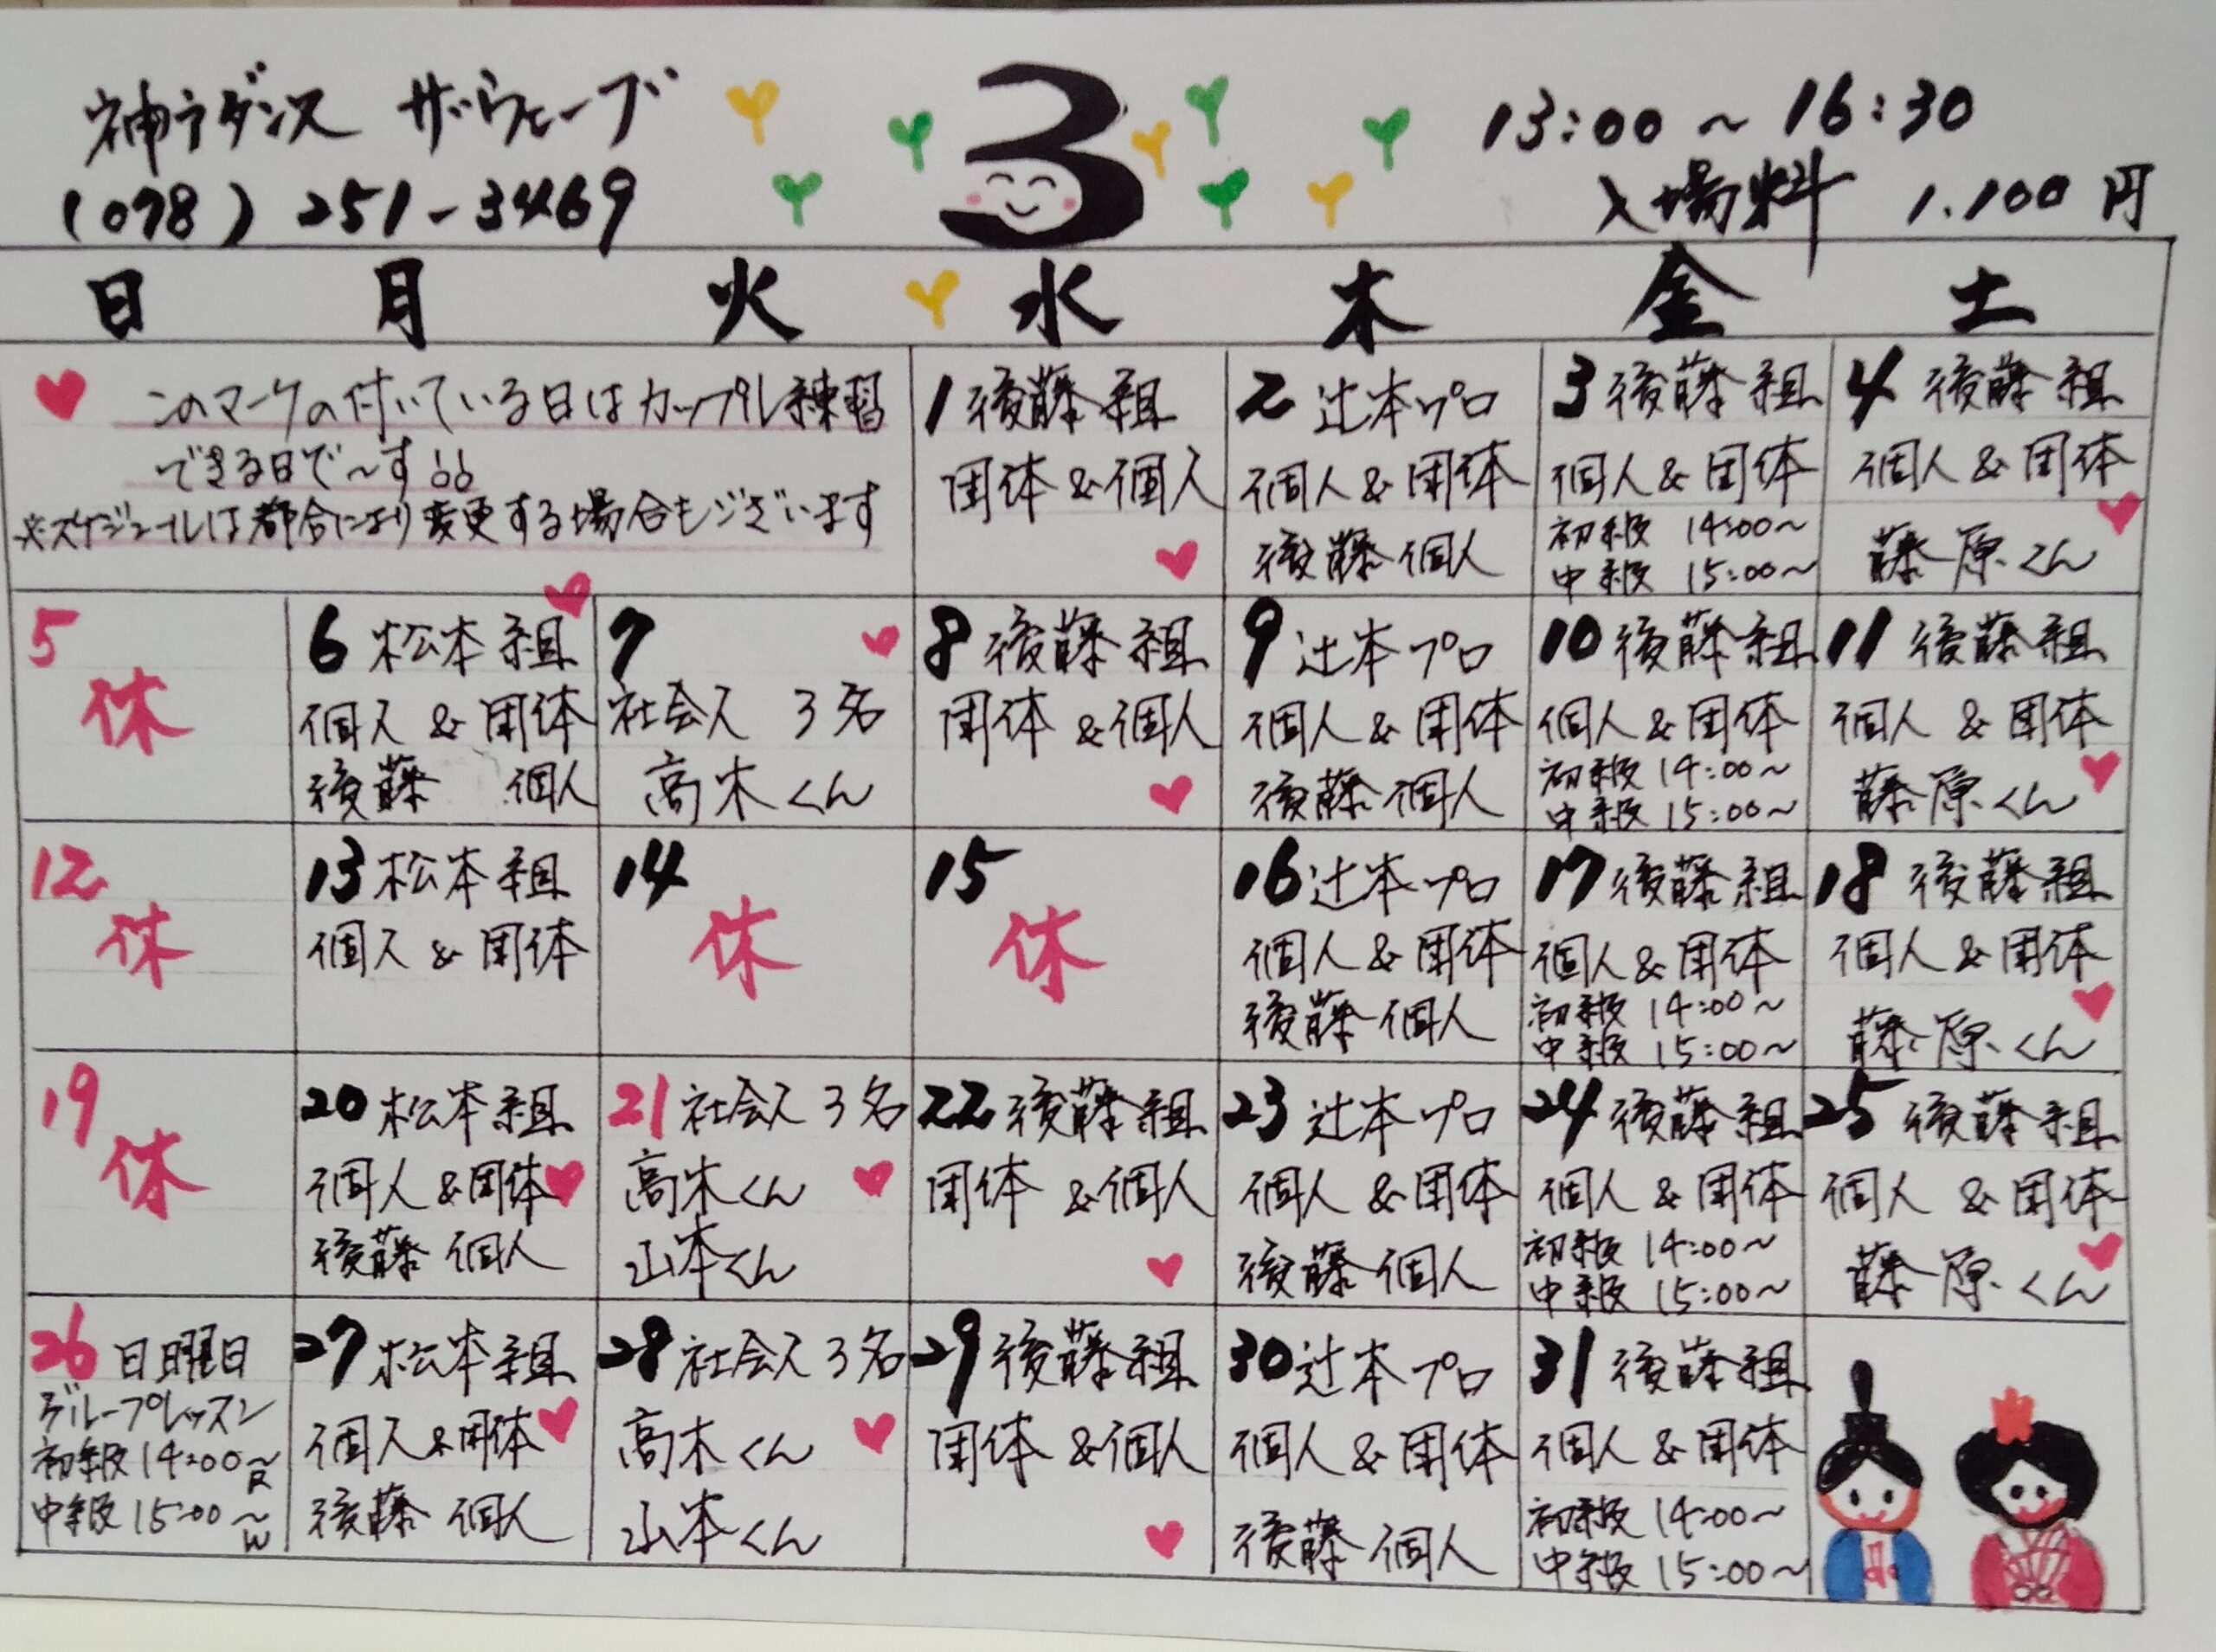 神戸ダンス ザ・ウェーブ
(078) 251-3469
3
13:00 ~ 16:30
入場料 1.100 円
日 月 火 水 木 金 土
このマークの付いている日はカップル練習
できる日で~す!!
※スケジュールは都合により変更する場合もございます
1 後藤組
団体 & 個人
2 辻本プロ
個人 & 団体
後藤 個人
3 後藤組
個人 & 団体
初級 14:00~
中級 15:00~
4 後藤組
個人 & 団体
藤原くん
5
休
6 松本組
個人 & 団体
後藤 個人
7
社会人 3名
高木くん
8 後藤組
団体 & 個人
9 辻本プロ
個人 & 団体
後藤 個人
10 後藤組
個人 & 団体
初級 14:00~
中級 15:00~
11 後藤組
個人 & 団体
藤原くん
12
休
13 松本組
個人 & 団体
14
休
15
休
16 辻本プロ
個人 & 団体
後藤 個人
17 後藤組
個人 & 団体
初級 14:00~
中級 15:00~
18 後藤組
個人 & 団体
藤原くん
19
休
20 松本組
個人 & 団体
後藤 個人
21 社会人 3名
高木くん
山本くん
22 後藤組
団体 & 個人
23 辻本プロ
個人 & 団体
後藤 個人
24 後藤組
個人 & 団体
初級 14:00~
中級 15:00~
25 後藤組
個人 & 団体
藤原くん
26 日曜日
グループレッスン
初級 14:00~R
中級 15:00~W
27 松本組
個人 & 団体
後藤 個人
28 社会人 3名
高木くん
山本くん
29 後藤組
団体 & 個人
30 辻本プロ
個人 & 団体
後藤 個人
31 後藤組
個人 & 団体
初級 14:00~
中級 15:00~